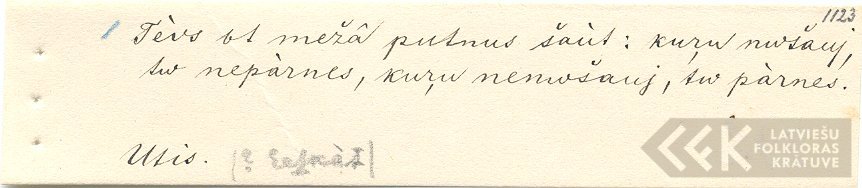 1123
Tèvs ot mežâ putnus šaùt: kuŗu nwšauj,
tw nepàrnes, kuŗu nenwšauj, tw pàrnes.
Utis.
LATVIEŠU
FOLKLORAS
KRĀTUVE